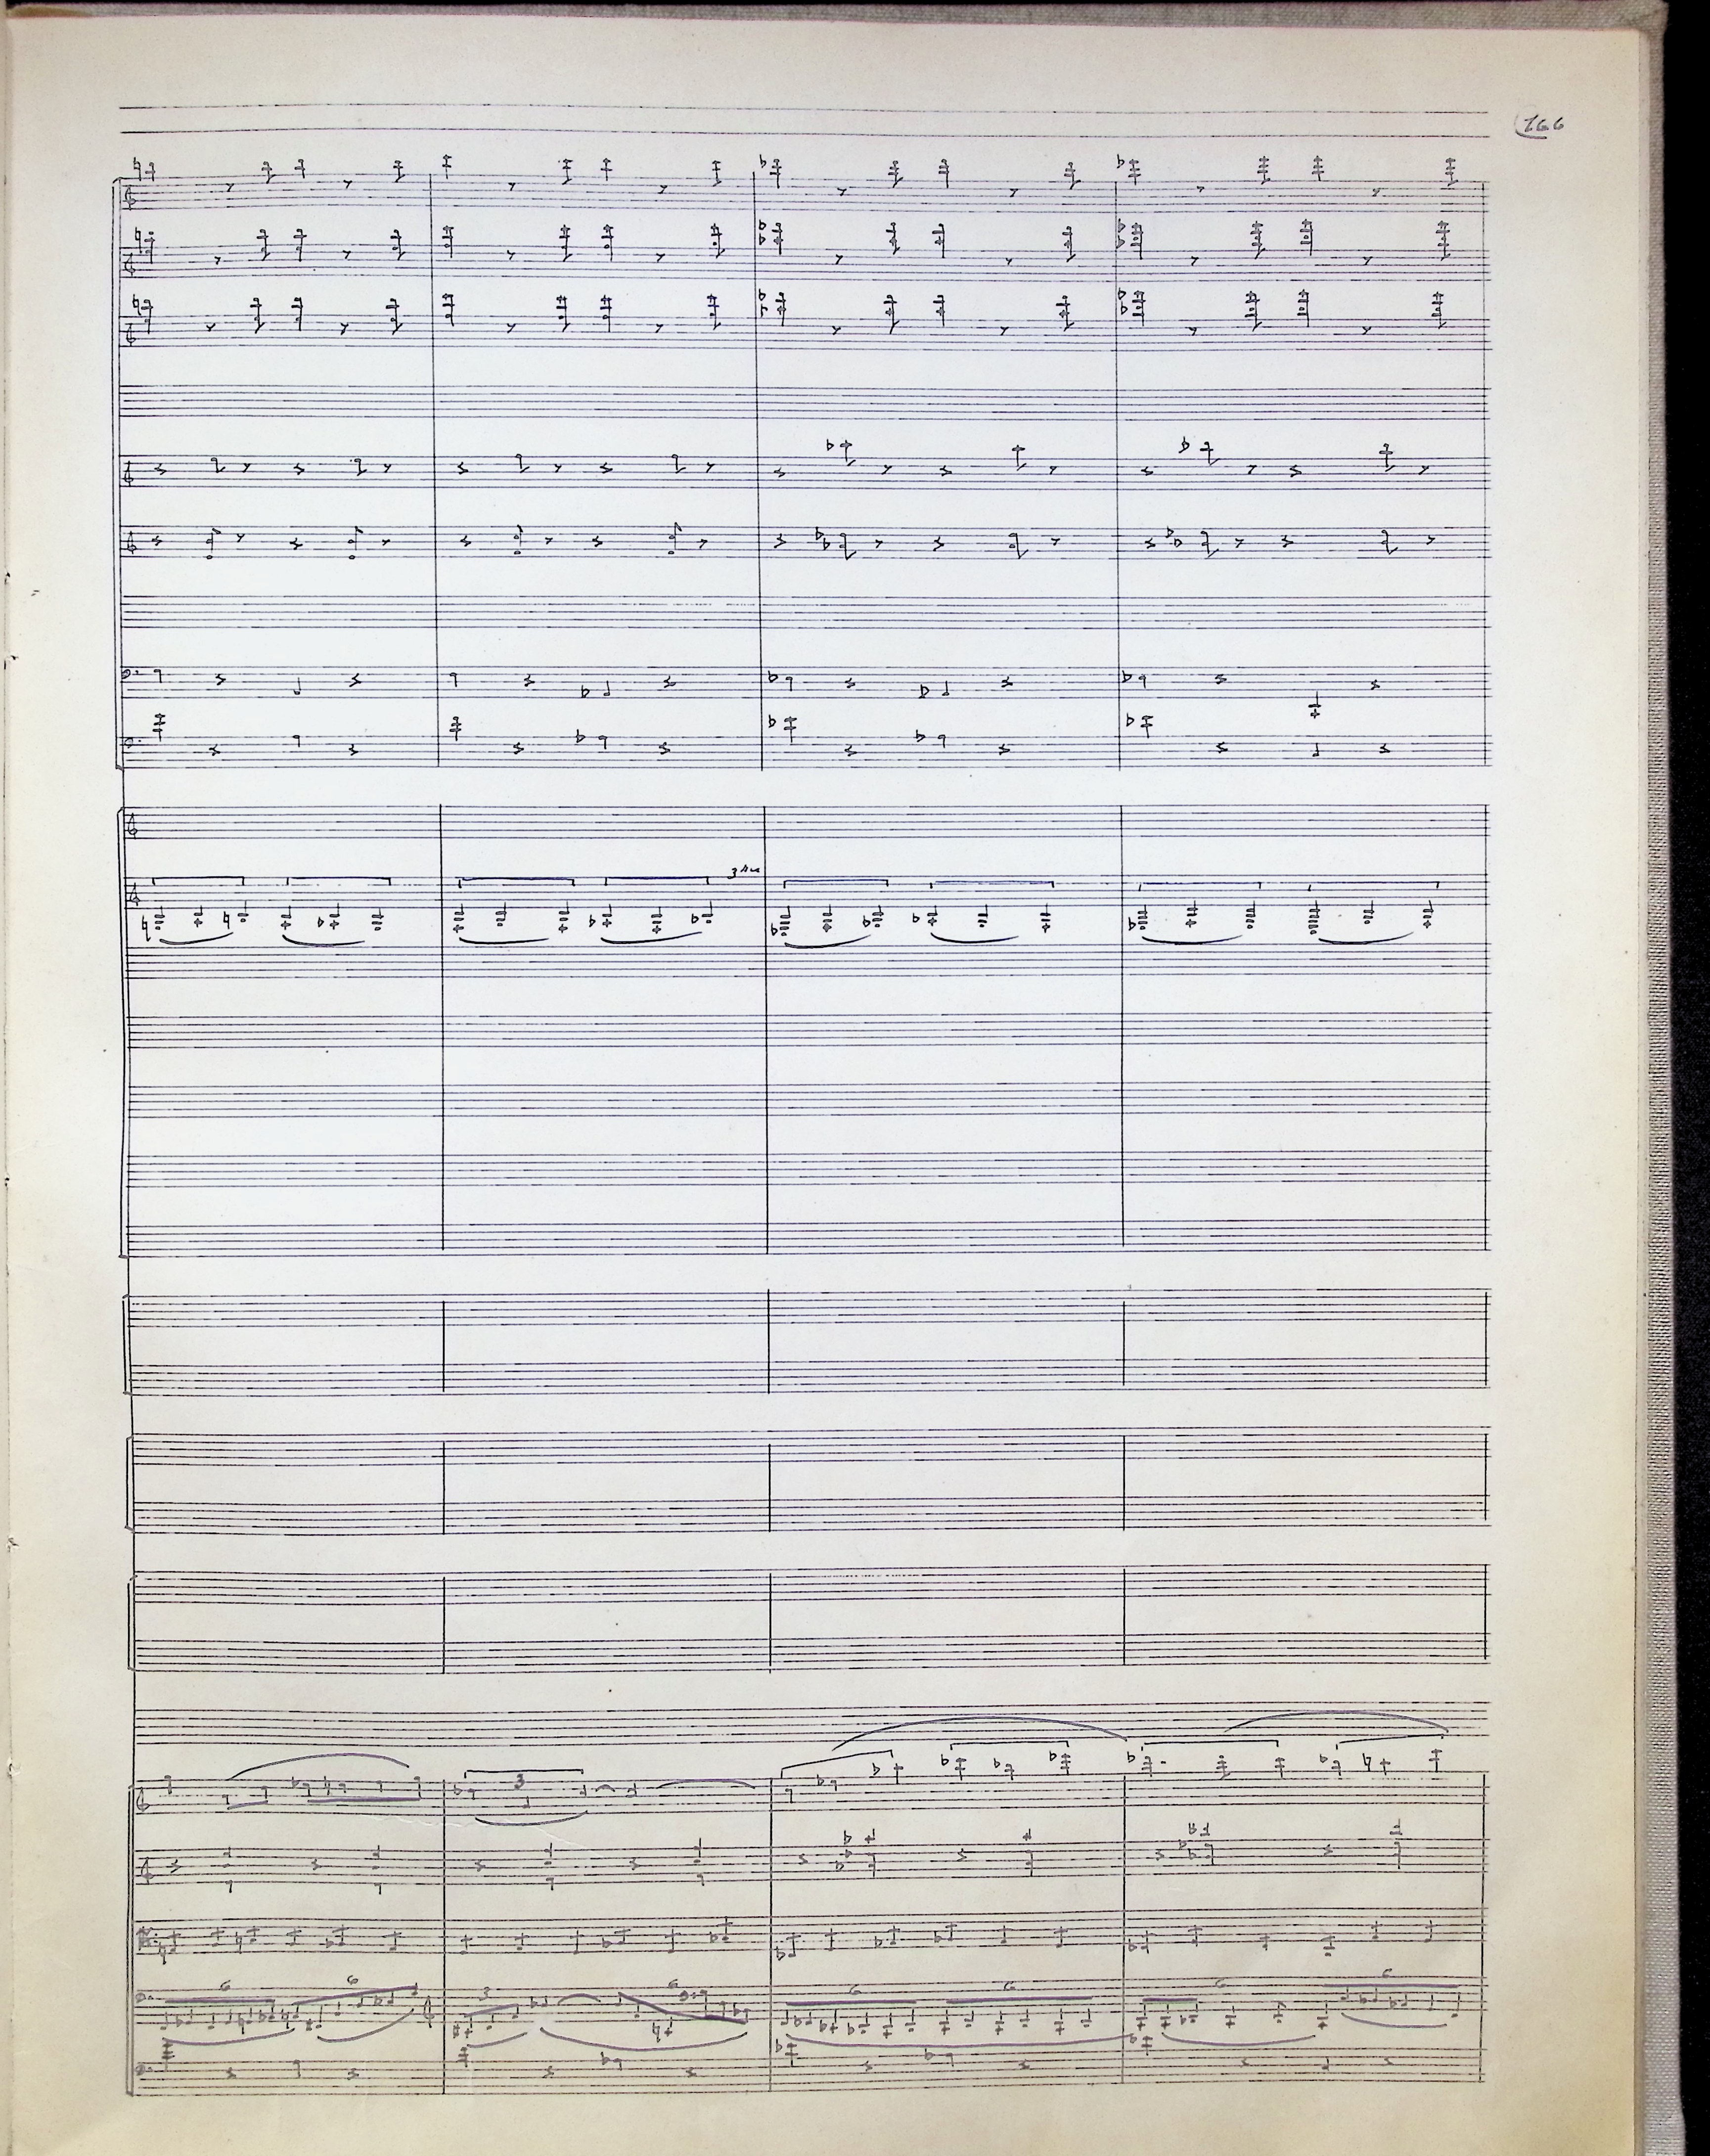 166
3
6 6 3 6 6 6 6 6